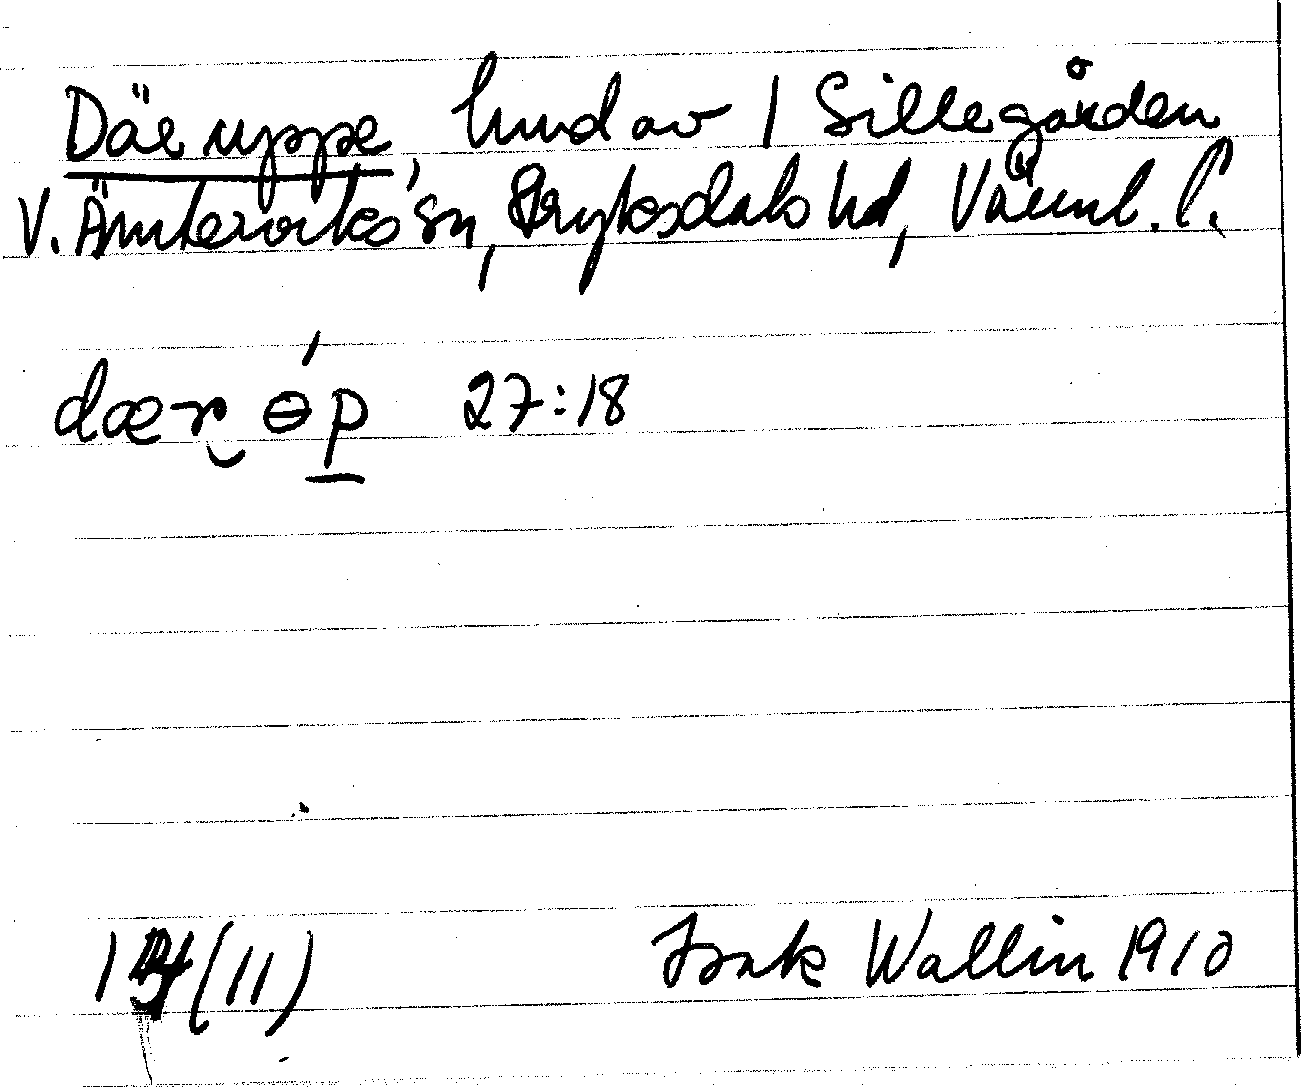 Däruppe, hmd av 1 Sillegården
V. Ämterviks sn, Fryksdals hd, Värml. l.
dær óp 27:18
(11) Isak Wallin 1910